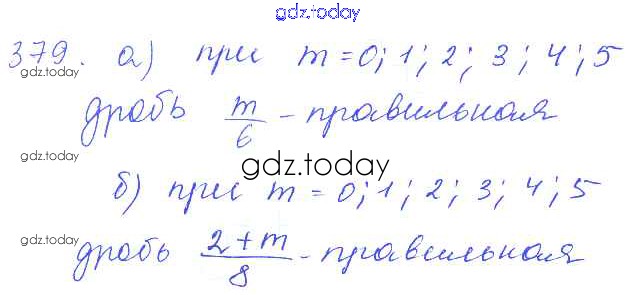 gdz.today
379. а) при m = 0; 1; 2; 3; 4; 5
gdz.today
дробь m/6 - правильная
gdz.today
gdz.today
б) при m = 0; 1; 2; 3; 4; 5
gdz.today
дробь 2+m/8 - правильная
gdz.today